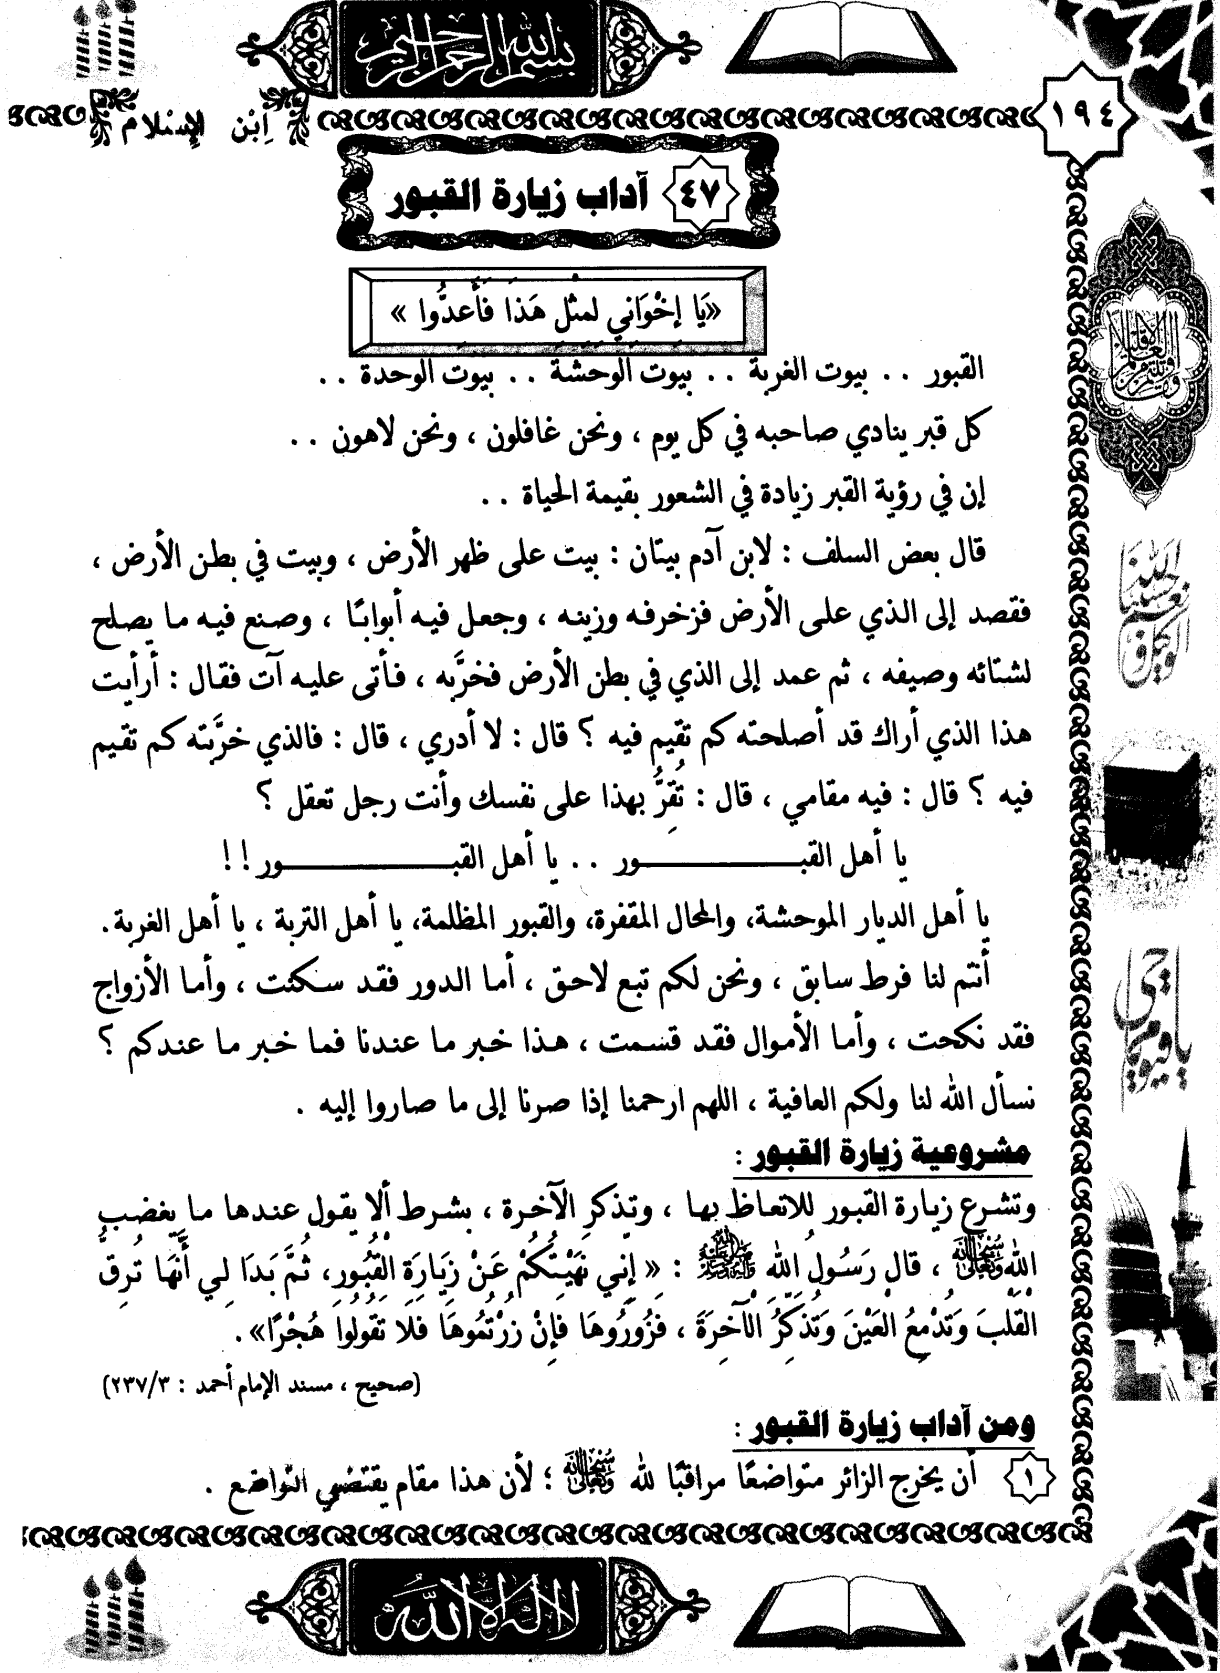 بسم الله الرحمن الرحيم
١٩٤
اِبْن الإِسْلام
٤٧ آداب زيارة القبور
«يَا إِخْوَانِي لِمِثْلِ هَذَا فَأَعِدُّوا »
القبور . . بيوت الغربة . . بيوت الوحشة . . بيوت الوحدة . .
كل قبر ينادي صاحبه في كل يوم ، ونحن غافلون ، ونحن لاهون . .
إن في رؤية القبر زيادة في الشعور بقيمة الحياة . .
قال بعض السلف : لابن آدم بيتان : بيت على ظهر الأرض ، وبيت في بطن الأرض ،
فقصد إلى الذي على الأرض فزخرفه وزينه ، وجعل فيه أبوابًا ، وصنع فيه ما يصلح
لشتائه وصيفه ، ثم عمد إلى الذي في بطن الأرض فخرَّبه ، فأتى عليه آت فقال : أرأيت
هذا الذي أراك قد أصلحته كم تقيم فيه ؟ قال : لا أدري ، قال : فالذي خرَّبته كم تقيم
فيه ؟ قال : فيه مقامي ، قال : تُقِرُّ بهذا على نفسك وأنت رجل تعقل ؟
يا أهل القبـــــــور . . يا أهل القبـــــــور !!
يا أهل الديار الموحشة، والمحال المقفرة، والقبور المظلمة، يا أهل التربة ، يا أهل الغربة.
أنتم لنا فرط سابق ، ونحن لكم تبع لاحق ، أما الدور فقد سكنت ، وأما الأزواج
فقد نكحت ، وأما الأموال فقد قسمت ، هذا خبر ما عندنا فما خبر ما عندكم ؟
نسأل الله لنا ولكم العافية ، اللهم ارحمنا إذا صرنا إلى ما صاروا إليه .
مشروعية زيارة القبور :
وتشرع زيارة القبور للاتعاظ بها ، وتذكر الآخرة ، بشرط ألا يقول عندها ما يغضب
الله سبحانه وتعالى ، قال رَسُولُ اللهِ صلى الله عليه وسلم : « إِنِي نَهَيْتُكُمْ عَنْ زِيَارَةِ القُبُورِ، ثُمَّ بَدَا لِي أَنَّهَا تُرِقُّ
القَلْبَ وَتُدْمِعُ العَيْنَ وَتُذَكِّرُ الآخِرَةَ ، فَزُورُوهَا فَإِنْ زُرْتُمُوهَا فَلا تَقُولُوا هُجْرًا».
(صحيح ، مسند الإمام أحمد : ٢٣٧/٣)
ومن آداب زيارة القبور :
١ أن يخرج الزائر متواضعًا مراقبًا لله سبحانه وتعالى ؛ لأن هذا مقام يقتضي التواضع .
لا إله إلا الله
حسبنا الله ونعم الوكيل
يا حي يا قيوم